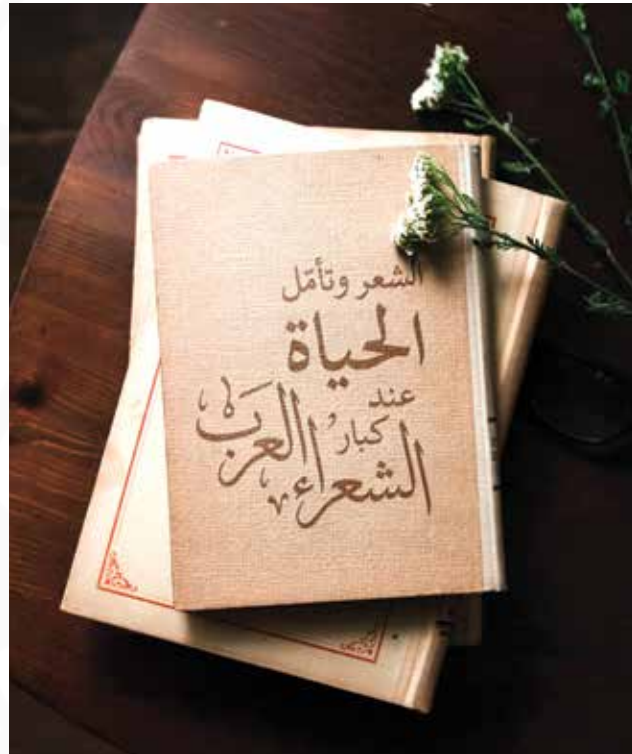 الشعر وتأمّل
الحياة
عند
كبار
الشعراء العرب